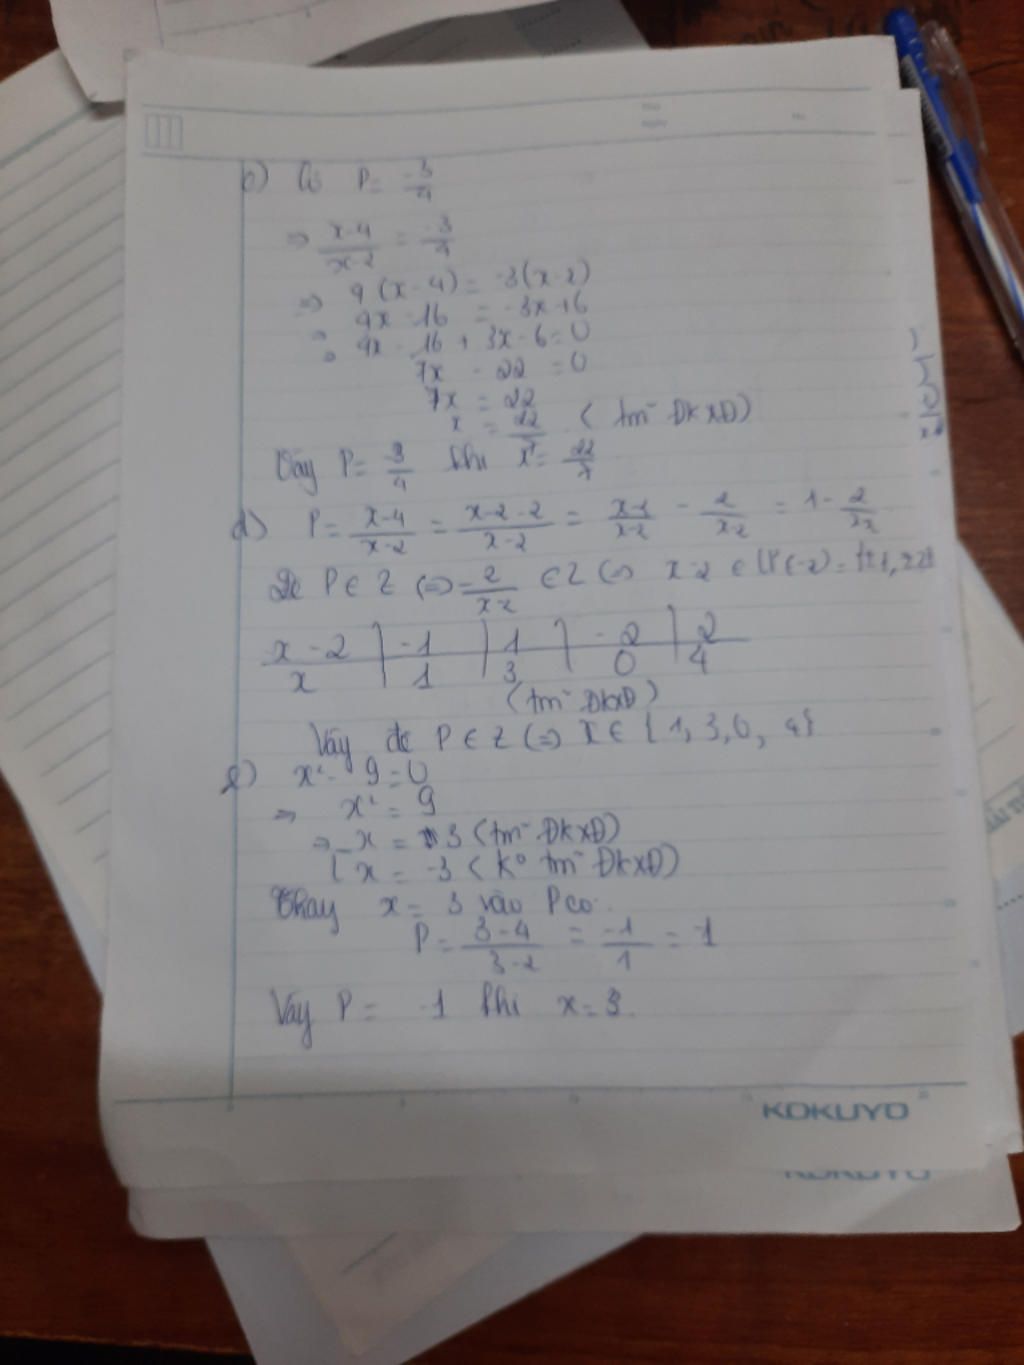 b) Có P = -3/4
=> x-4/x-2 = -3/4
=> 4(x-4) = -3(x-2)
=> 4x-16 = -3x+6
=> 4x-16+3x-6=0
7x - 22 = 0
7x = 22
x = 22/7 (tm ĐKXĐ)
Vậy P = 3/4 khi x = 22/7
d) P = x-4/x-2 = x-2-2/x-2 = x-2/x-2 - 2/x-2 = 1 - 2/x-2
Để P ∈ Z <=> -2/x-2 ∈ Z <=> x-2 ∈ Ư(-2) = {±1, ±2}
x-2 | -1 | 1 | -2 | 2
x | 1 | 3 | 0 | 4
(tm ĐKXĐ)
Vậy để P ∈ Z <=> x ∈ {1, 3, 0, 4}
x² - 9 = 0
=> x² = 9
=> x = 3 (tm ĐKXĐ)
[ x = -3 (K° tm ĐKXĐ)
Thay x = 3 vào P có:
P = 3-4/3-2 = -1/1 = -1
Vậy P = -1 khi x = 3.
KOKUYO
KOKUYO